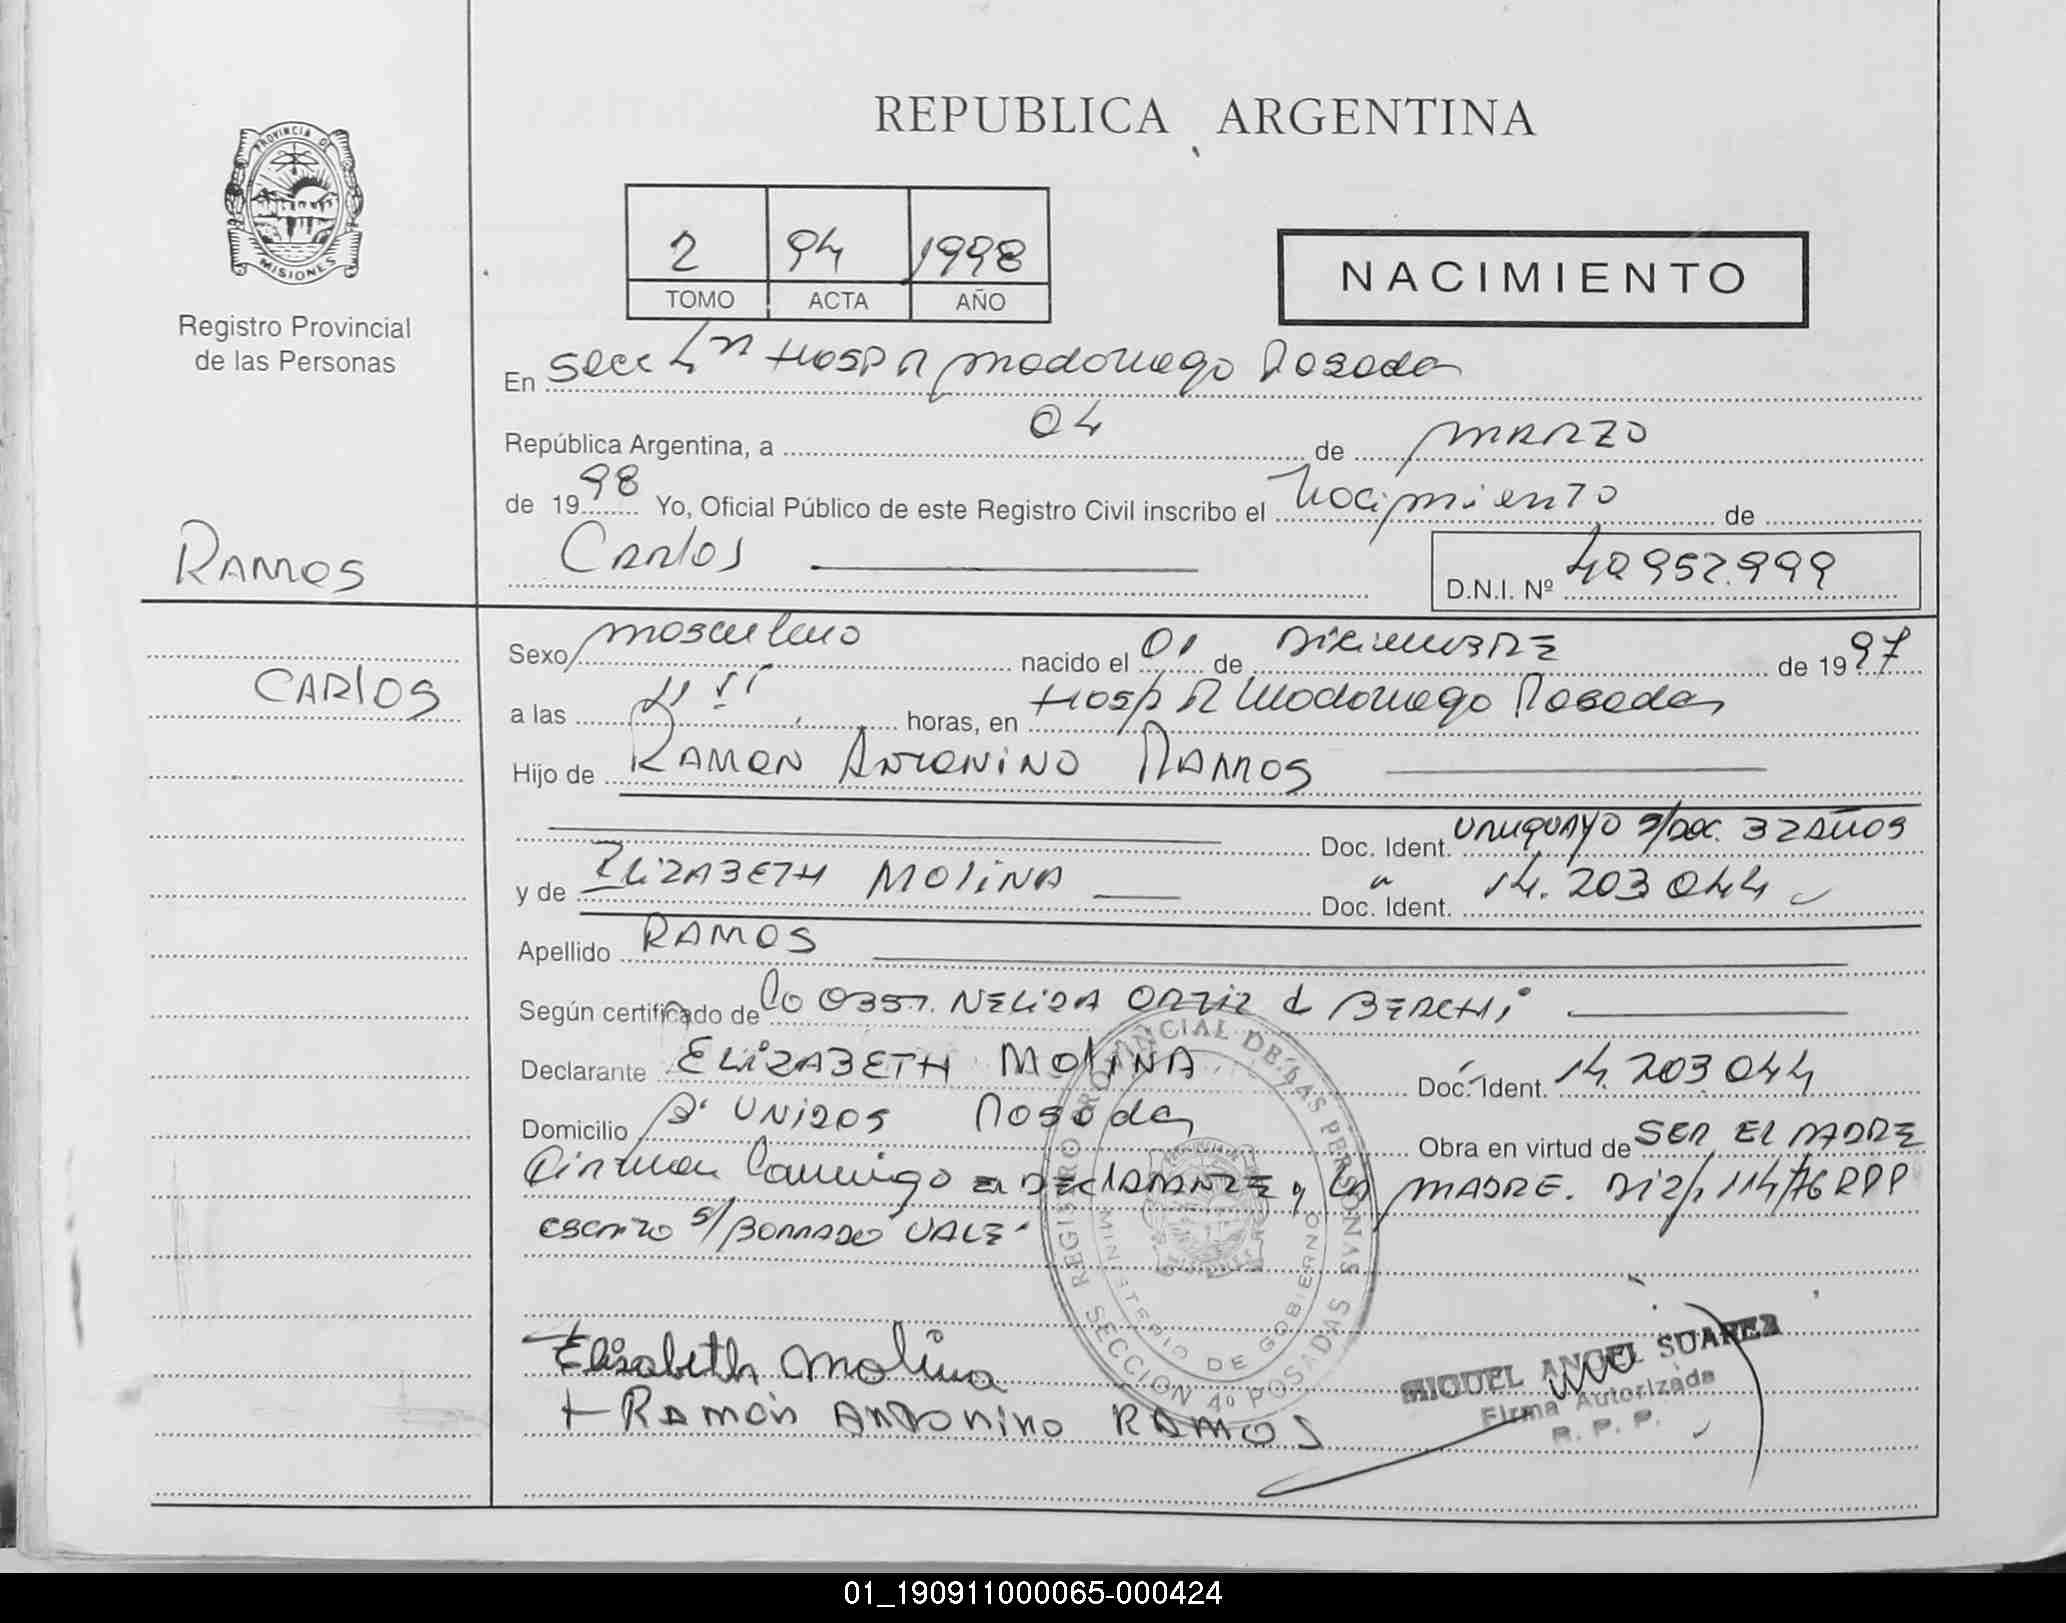 REPUBLICA ARGENTINA
PROVINCIA DE
MISIONES
Registro Provincial
de las Personas
2 94 1998
TOMO ACTA AÑO
NACIMIENTO
En Secc 4ta Hosp R Madariaga Posadas
República Argentina, a 04 de MARZO
de 1998 Yo, Oficial Público de este Registro Civil inscribo el Nacimiento de
RAMOS
Carlos
D.N.I. Nº 40952.999
Sexo Masculino nacido el 01 de DICIEMBRE de 1997
CARLOS
a las 11 horas, en Hosp R Madariaga Posadas
Hijo de RAMON ANTONINO RAMOS
Doc. Ident. URUGUAYO S/DOC. 32 AÑOS
y de ELIZABETH MOLINA Doc. Ident. 14.203 044
Apellido RAMOS
Según certificado de la OBST. NELIDA ORTIZ d BERCHI
Declarante ELIZABETH MOLINA Doc. Ident. 14.203 044
Domicilio Bº UNIDOS Posadas Obra en virtud de SER EL PADRE
Firman Conmigo EL DECLARANTE y LA MADRE. DIZP. 114/76 RPP
ESCRITO S/BORRADO VALE
REGISTRO PROVINCIAL DE LAS PERSONAS
MINISTERIO DE GOBIERNO
SECCION 4º POSADAS
Elisabeth Molina
MIGUEL ANGEL SUAREZ
Firma Autorizada
R. P. P.
+ RAMON ANTONINO RAMOS
01_190911000065-000424